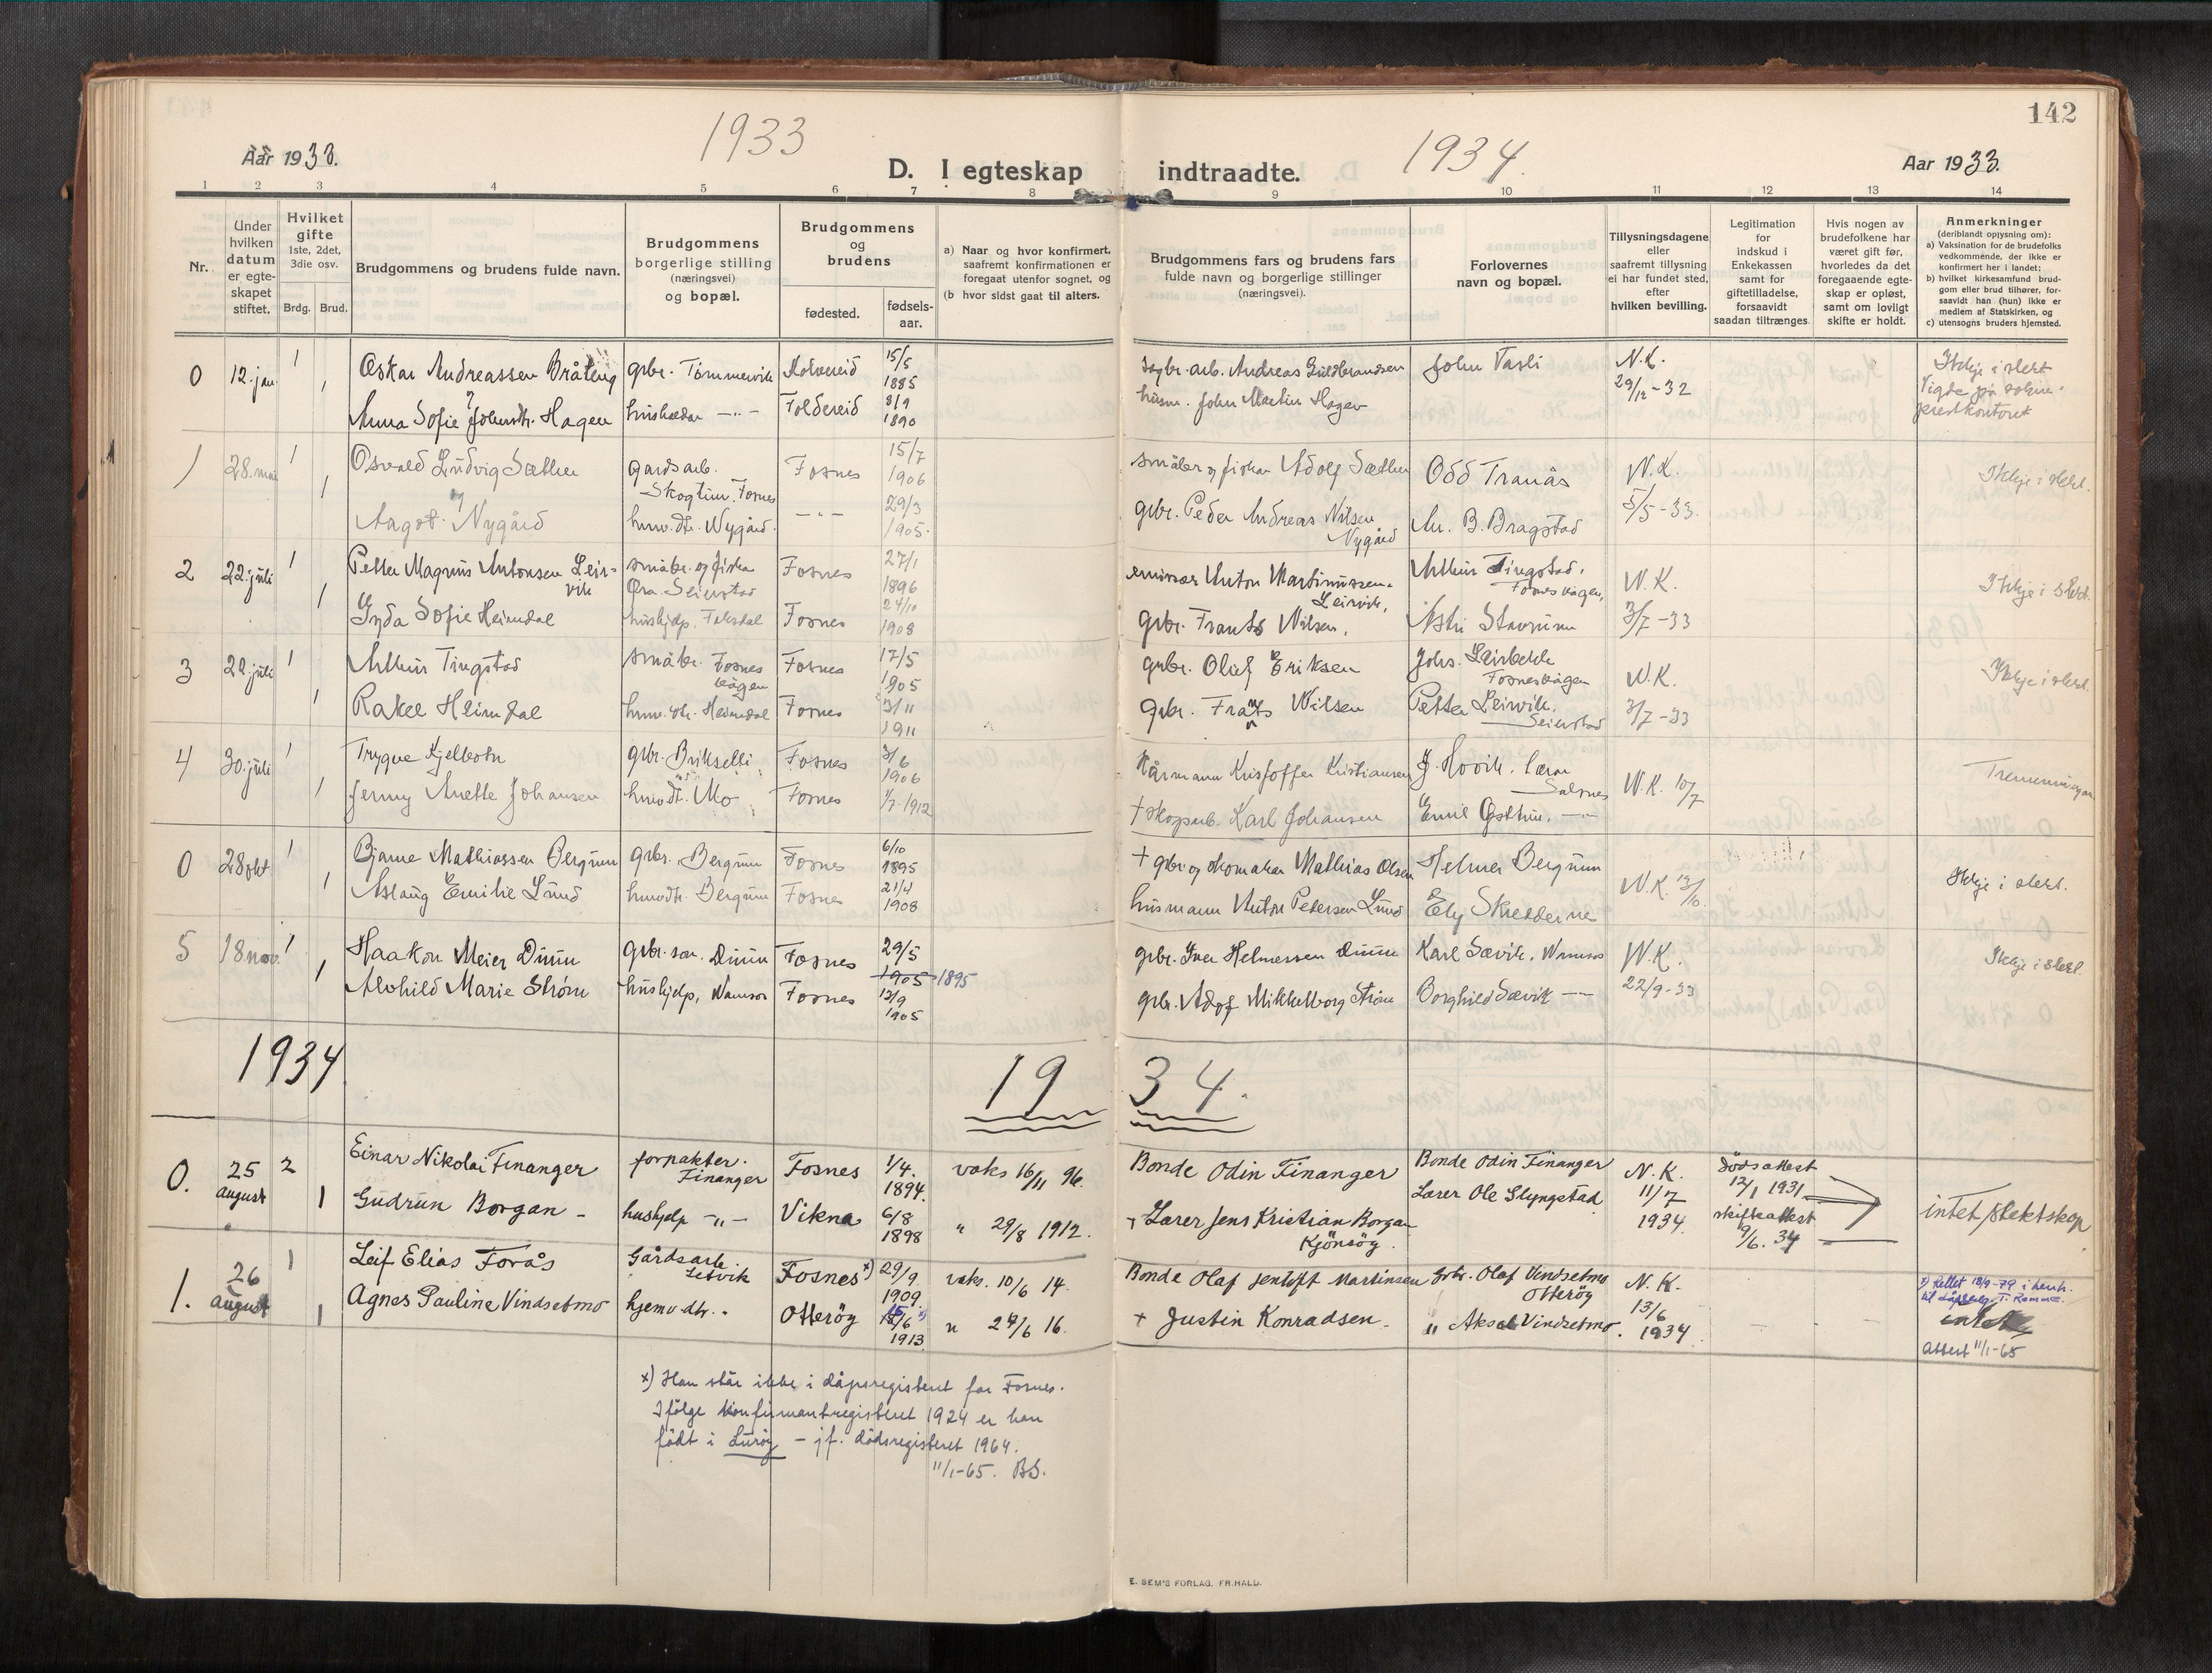 142
1933
1934
Aar 1933.
D. I egteskap indtraadte.
Aar 1933.
1 2 3 4 5 6 7 8 9 10 11 12 13 14
Nr.
Under
hvilken
datum
er egte-
skapet
stiftet.
Hvilket
gifte
1ste, 2det,
3die osv.
Brdg. Brud.
Brudgommens og brudens fulde navn.
Brudgommens
borgerlige stilling
(næringsvei)
og bopæl.
Brudgommens
og
brudens
fødested.
fødsels-
aar.
a) Naar og hvor konfirmert,
saafremt konfirmationen er
foregaat utenfor sognet, og
(b hvor sidst gaat til alters.
Brudgommens fars og brudens fars
fulde navn og borgerlige stillinger
(næringsvei).
Forlovernes
navn og bopæl.
Tillysningsdagene
eller
saafremt tillysning
ei har fundet sted,
efter
hvilken bevilling.
Legitimation
for
indskud i
Enkekassen
samt for
giftetilladelse,
forsaavidt
saadan tiltrænges
Hvis nogen av
brudefolkene har
været gift før,
hvorledes da det
foregaaende egte-
skap er opløst,
samt om lovligt
skifte er holdt.
Anmerkninger
(deriblandt oplysning om):
a) Vaksination for de brudefolks
vedkommende, der ikke er
konfirmert her i landet;
b) hvilket kirkesamfund brud-
gom eller brud tilhører, for-
saavidt han (hun) ikke er
medlem af Statskirken, og
c) utensogns bruders hjemsted.
0 12. jan 1 Oskar Andreassen Bråteng grbr. Tømmervik Kolvereid 15/5 1885 sagbr. arb. Andreas Guldbrandsen John Vasli N.K. 29/12-32 Ikkje i slekt
1 Anna Sofie Johnsdtr. Hagen Foldereid 8/9 1890 husm. John Martin Hagen Vigde på sokne-
prestkontoret
1 28. mai 1 Osvald Ludvig Sæther gardsarb. Fosnes 15/7 1906 småbr og fiskar Adolf Sæther Odd Tranås N.K. 5/5-33. Ikkje i slekt.
Fosnes
1 Aagot Nygård hmv. dtr. Nygård. —"— 29/3 1905. grbr. Peder Andreas Nilsen An. B. Bragstad
Nygård
2 22. juli 1 Petter Magnus Antonsen Leir- småbr. og fiskar Fosnes 27/1 1896 Anton Martinussen Arthur Tingstad, N.K. Ikkje i slekt.
vik Seierstad Leirvik, Fosnesvågen,
1 Gyda Sofie Heimdal hushjelp, Faksdal Fosnes 24/10 1908 grbr. Frants Nilsen. 3/7-33
3 22. juli 1 Arthur Tingstad småbr. Fosnes Fosnes 17/5 1905 grbr. Oluf Eriksen Johs. Leirbekk N.K. Ikkje i slekt.
vågen Fosnesvågen
1 Rakel Heimdal hmv. dtr. Heimdal Fosnes 3/11 1911 grbr. Frants Nilsen Petter Leirvik. 3/7-33
Seierstad
4 30. juli 1 Trygve Kjelbotn grbr. Fosnes 3/6 1906 Kårmann Kristoffer Kristiansen J. Hovik. lærar N.K. 10/7 Tremenningar
Salsnes
1 Jenny Anette Johansen hmv. dt. Mo Fosnes 1/7. 1912 + skogsarb. Karl Johansen Emil Østhus. —"—
0 28 okt 1 Bjarne Mathiassen Bergum grbr. Bergum Fosnes 6/10 1895 + grbr. og skomakar Mathias Olsen Helmer Bergum N.K. 13/10. Ikkje i slekt.
1 Aslaug Emilie Lund hmvdtr. Bergum Fosnes 21/4 1908 husmann Anton Pedersen Lund Ely Skredderne
5 18 nov. 1 Haakon Meier Duun grbr. son. Duun Fosnes 29/5 1905 1895 grbr. Iver Helmersen Duun Karl Sævik. Namsos N.K. Ikkje i slekt.
1 Alvhild Marie Strøm hushjelp, Namsos Fosnes 13/9 1905 grbr. Adolf Mikkelborg Strøm Borghild Sævik —"— 22/9-33
1934
1934.
0. 25 august 2 Einar Nikolai Finanger forpakter. Finanger Fosnes 1/4. 1894. vaks 16/11 96. Bonde Odin Finanger Bonde Odin Finanger N.K. 11/7 1934 dödsattest 12/1 1931 intet slektskap
1 Gudrun Borgan - hushjelp —"— Vikna 6/8 1898 " 29/8 1912. + Lærer Jens Kristian Borgan Lærer Ole Slyngstad skifteattest 9/6. 34
Kjönsöy.
1. 26 august 1 Leif Elias Forås Gårdsarb. Fosnes x) 29/9 1909 vaks. 10/6 14. Bonde Olaf Jentoft Martinsen Grbr. Olaf Vindsetmo N.K. 13/6 1934 Rettet 18/9-79 i henh.
Otteröy til dåpsbok
1 Agnes Pauline Vindsetmo hjemv. dtr. Otteröy 15/6 1913 " 24/6 16. + Justin Konradsen. " Aksel Vindsetmo. intet
attest 11/1-65
x) Han står ikke i dåpsregisteret for Fosnes.
Ifölge konfirmantregisteret 1924 er han
födt i Luröy – jf. dödsregisteret 1964.
11/1-65. BS.
E. SEM'S FORLAG. FR.HALD.